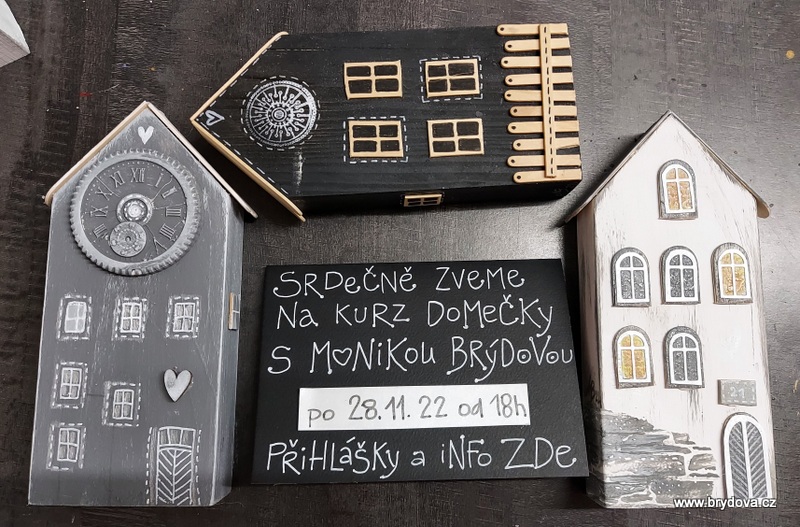 SRDEČNĚ ZVEME
Na KURZ DOMEČKY
S MONiKOU BRÝDOVOU
po 28.11. 22 od 18h
PŘIHLÁŠKY a iNFO ZDE
www.brydova.cz